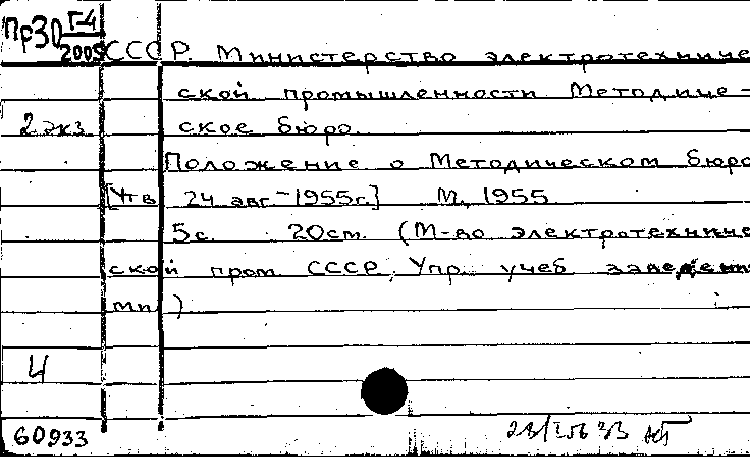 Пр30 Г-4
2005 СССР. Министерство электротехниче
ской промышленности Методиче-
2 экз. ское бюро.
Положение о Методическом бюро
[Утв 24 авг 1955г.] М, 1955
5с. 20см. (М-во электротехниче
ской пром СССР, Упр. учеб заведени
ями)
4
60933